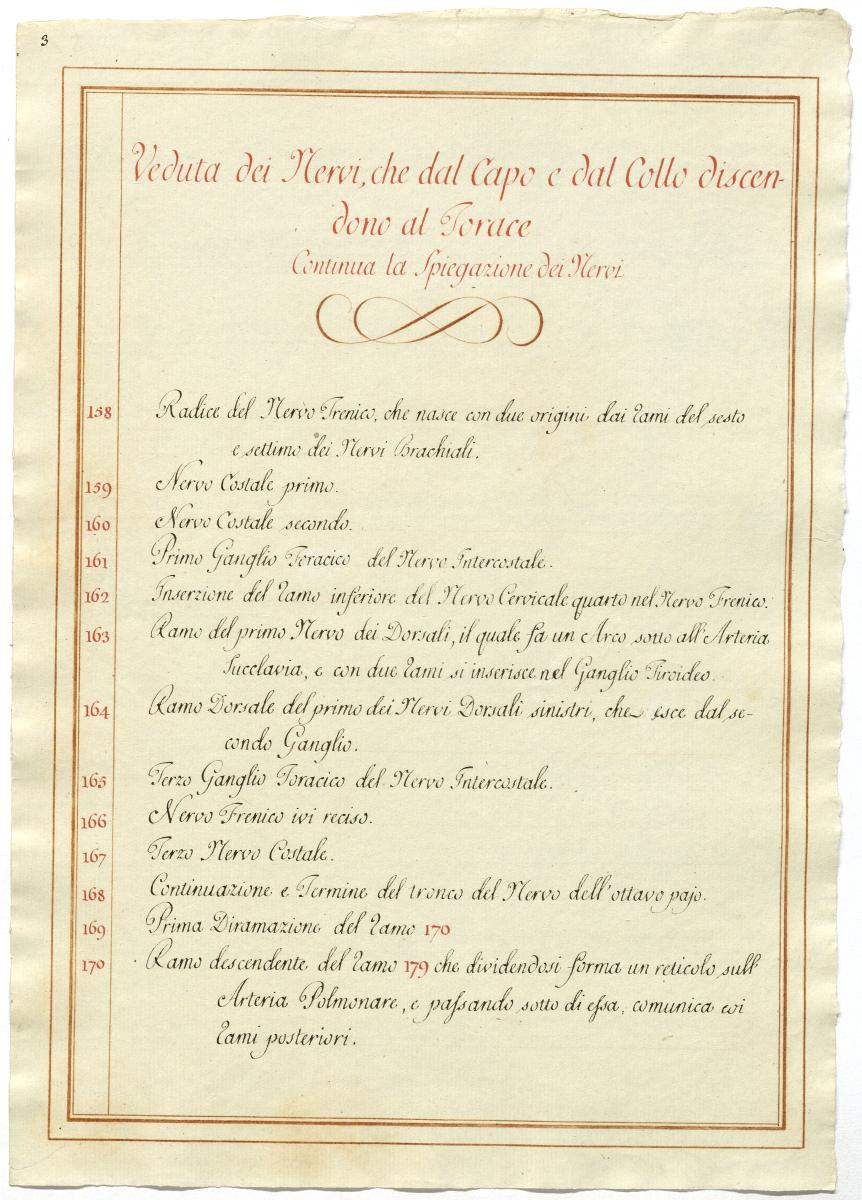 3
Veduta dei Nervi, che dal Capo e dal Collo discen-
dono al Torace
Continua la Spiegazione dei Nervi
158 Radice del Nervo Frenico, che nasce con due origini dai rami del sesto
e settimo dei Nervi Brachiali.
159 Nervo Costale primo.
160 Nervo Costale secondo.
161 Primo Ganglio Toracico del Nervo Intercostale.
162 Inserzione del ramo inferiore del Nervo Cervicale quarto nel Nervo Frenico.
163 Ramo del primo Nervo dei Dorsali, il quale fa un Arco sotto all'Arteria
Succlavia, e con due rami si inserisce nel Ganglio Tiroideo.
164 Ramo Dorsale del primo dei Nervi Dorsali sinistri, che esce dal se-
condo Ganglio.
165 Terzo Ganglio Toracico del Nervo Intercostale.
166 Nervo Frenico ivi reciso.
167 Terzo Nervo Costale.
168 Continuazione e Termine del tronco del Nervo dell'ottavo pajo.
169 Prima Diramazione del ramo 170
170 Ramo descendente del ramo 179 che dividendosi forma un reticolo sull'
Arteria Polmonare, e paſsando sotto di eſsa, comunica coi
rami posteriori.